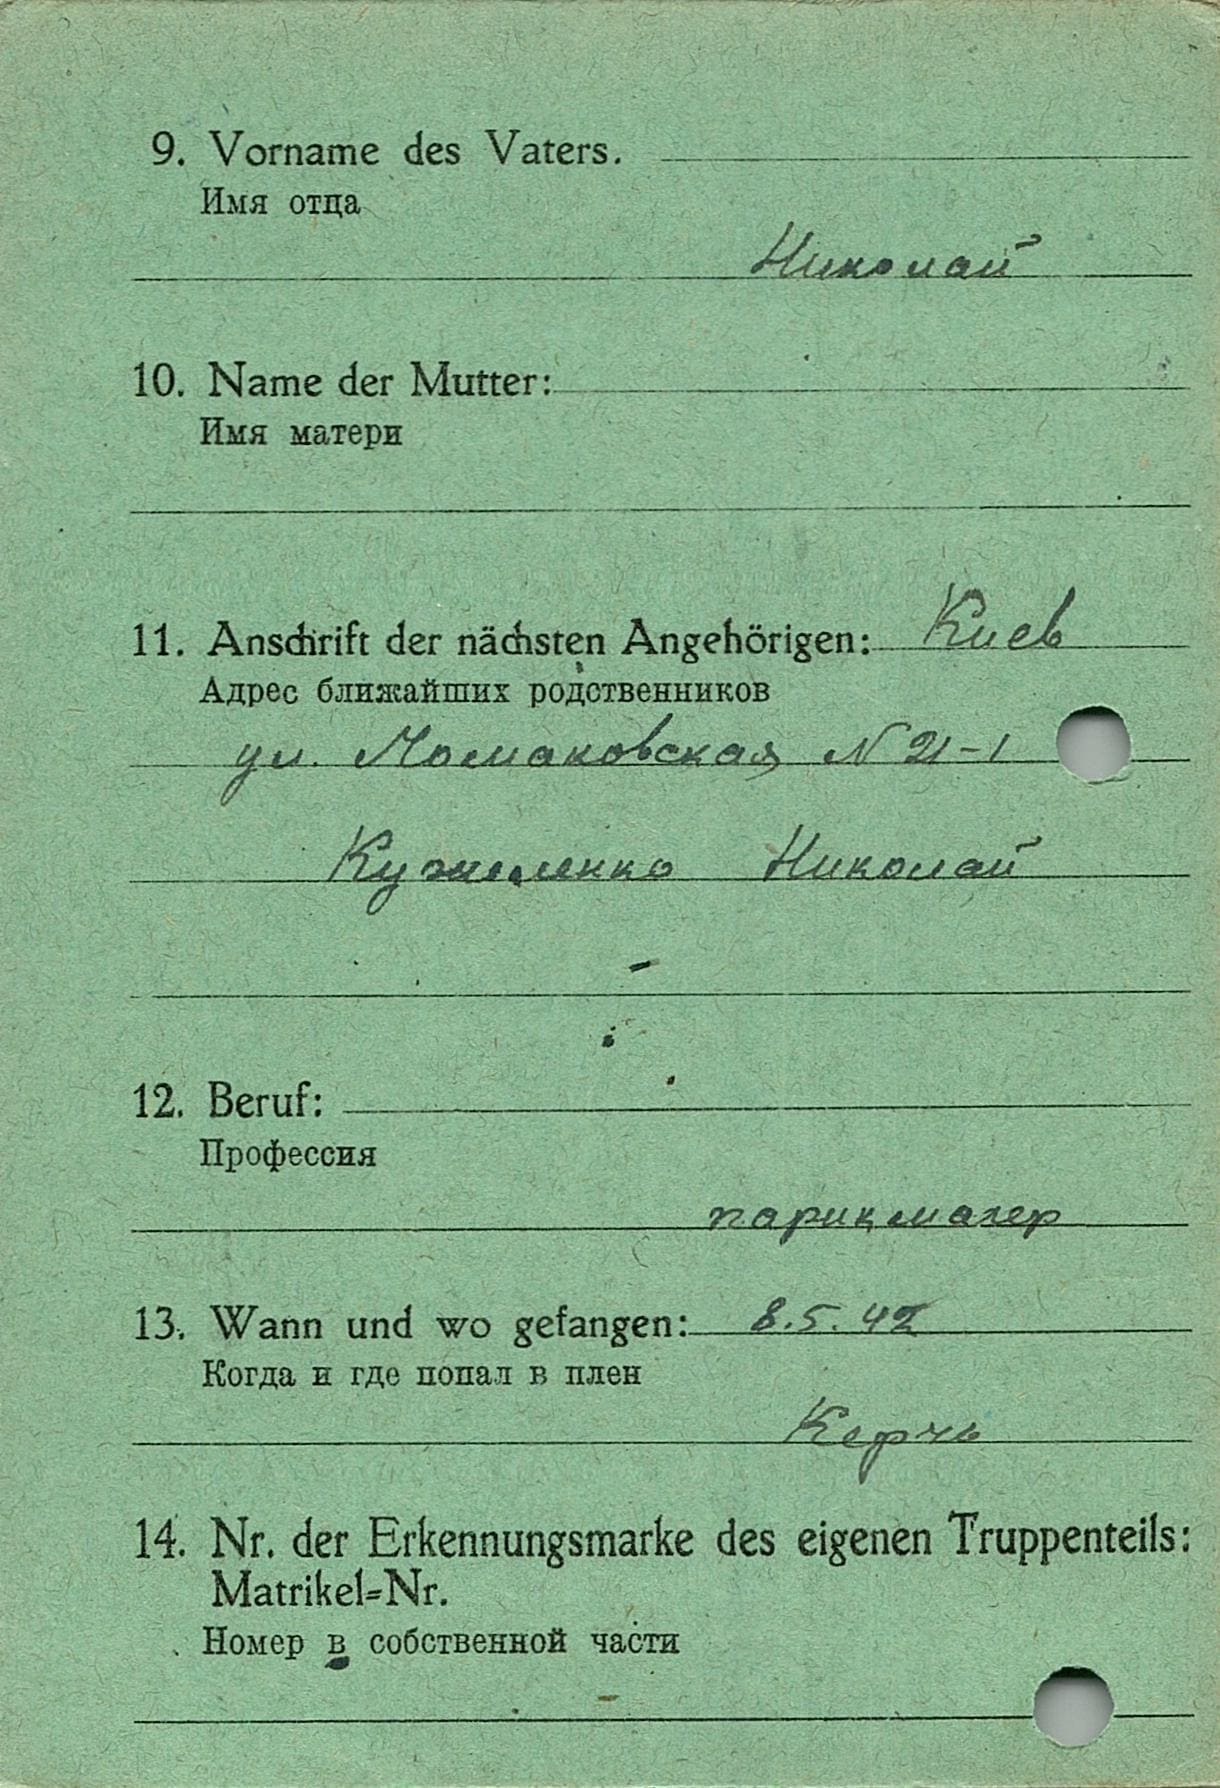 9. Vorname des Vaters.
Имя отца
Николай
10. Name der Mutter:
Имя матери
11. Anschrift der nächsten Angehörigen: Киев
Адрес ближайших родственников
ул. Ломаковская N 21-1
Николай
12. Beruf:
Профессия
парикмахер
13. Wann und wo gefangen: 8.5.42
Когда и где попал в плен
Керчь
14. Nr. der Erkennungsmarke des eigenen Truppenteils:
Matrikel=Nr.
Номер в собственной части